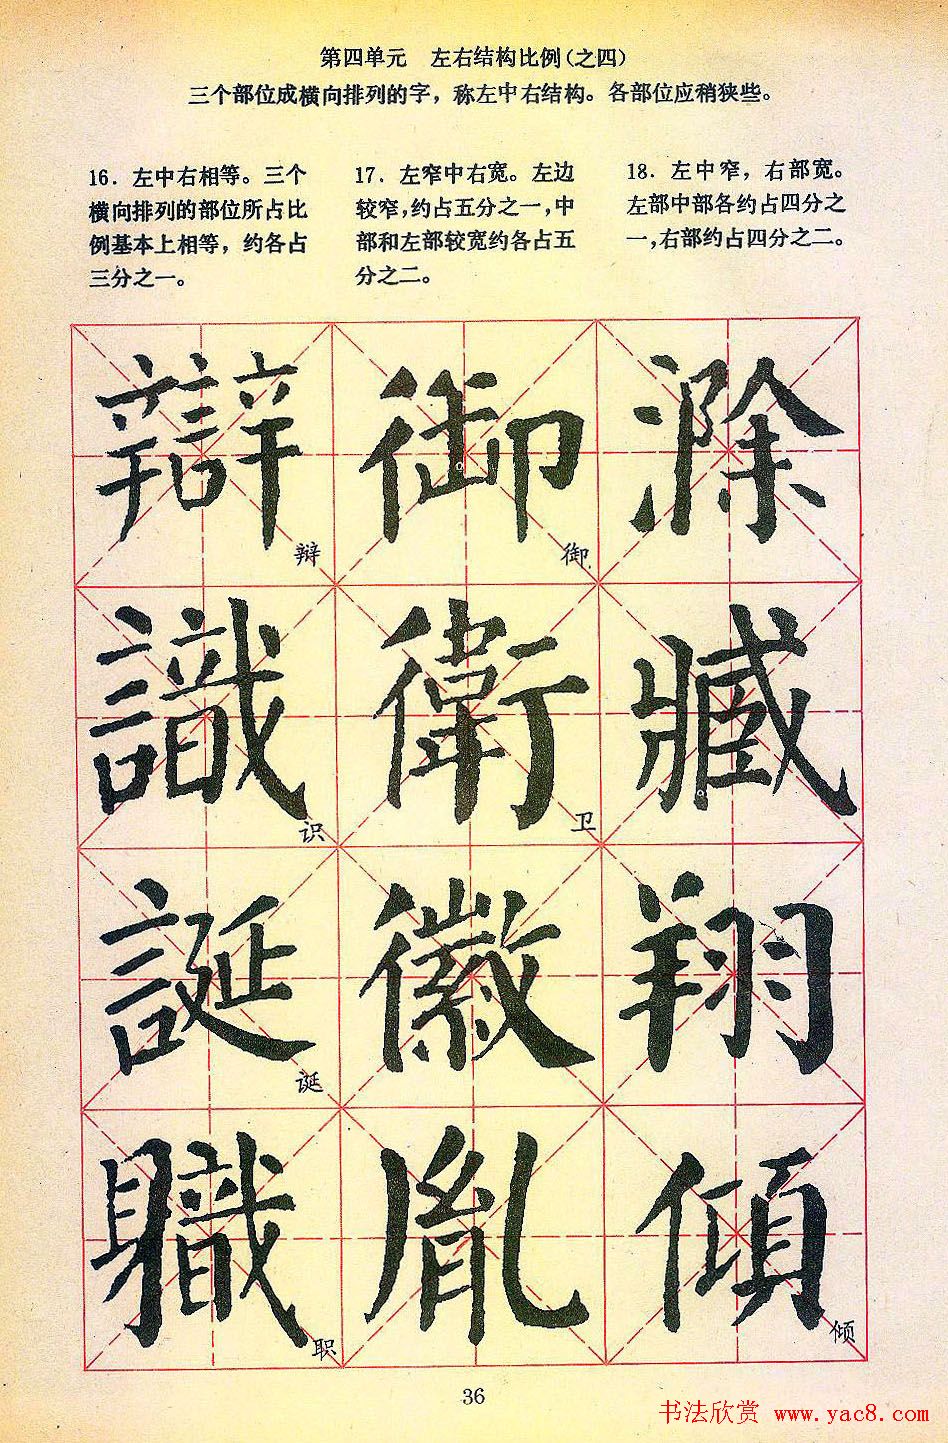 第四单元　左右结构比例（之四）
三个部位成横向排列的字，称左中右结构。各部位应稍狭些。
16．左中右相等。三个
横向排列的部位所占比
例基本上相等，约各占
三分之一。
17．左窄中右宽。左边
较窄，约占五分之一，中
部和左部较宽约各占五
分之二。
18．左中窄，右部宽。
左部中部各约占四分之
一，右部约占四分之二。
辯 御 滁
辩 御
識 衛 臧
识 卫
誕 徽 翔
诞
職 胤 傾
职 倾
36
书法欣赏 www.yac8.com